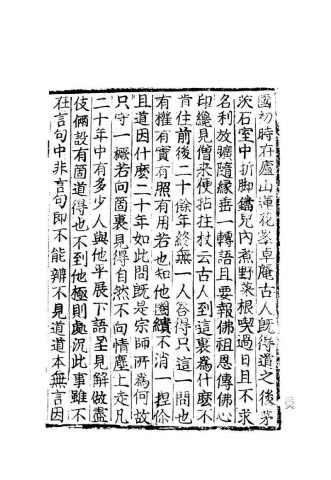 國初時在廬山蓮花峯卓庵古人既得道之後茅
茨石室中折脚鐺兒內煮野菜根喫過日且不求
名利放曠隨緣垂一轉語且要報佛祖恩傳佛心
印纔見僧來便拈拄杖云古人到這裏為什麼不
肯住前後二十餘年終無一人答得只這一問也
有權有實有照有用若也知他圈繢不消一捏你
且道因什麼二十年如此問既是宗師所為何故
只守一橛若向箇裏見得自然不向情塵上走凡
二十年中有多少人與他平展下語呈見解做盡
伎倆設有箇道得也不到他極則處況此事雖不
在言句中非言句即不能辨不見道道本無言因